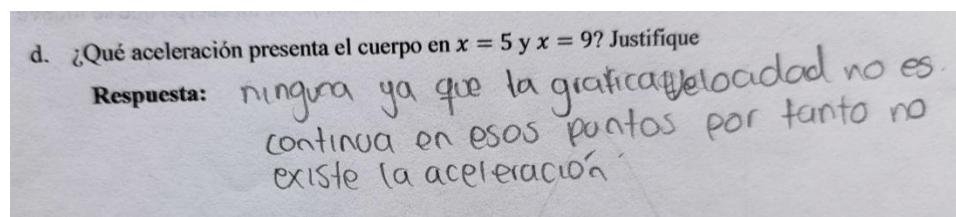 d. ¿Qué aceleración presenta el cuerpo en x = 5 y x = 9? Justifique
Respuesta: ninguna ya que la grafica velocidad no es
continua en esos puntos por tanto no
existe la aceleración